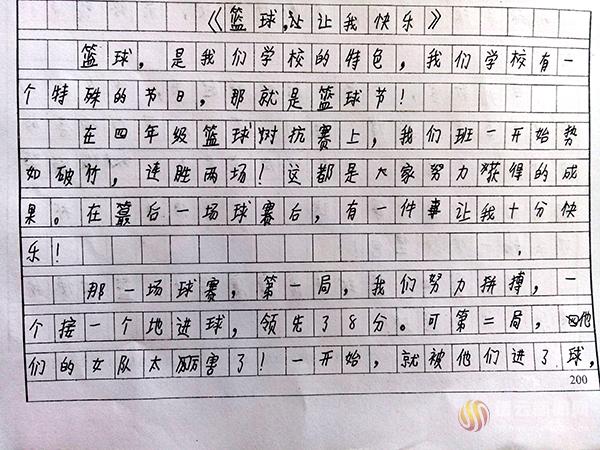 《篮球,让让我快乐》
篮球，是我们学校的特色，我们学校有一
个特殊的节日，那就是篮球节！
在四年级篮球对抗赛上，我们班一开始势
如破竹，连胜两场！这都是大家努力获得的成
果。在最后一场球赛后，有一件事让我十分快
乐！
那一场球赛，第一局，我们努力拼搏，一
个接一个地进球，领先了8分。可第二局，他
们的女队太厉害了！一开始，就被他们进了球，
200